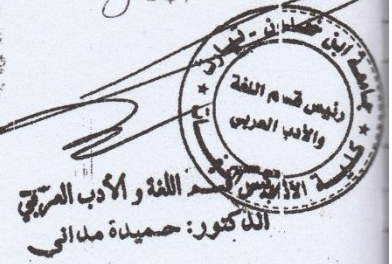 جامعة ابن خلدون - تيارت
رئيس قسم اللغة
والأدب العربي
كلية الآداب
رئيس قسم اللغة والأدب العربي
الدكتور: حميدة مداني